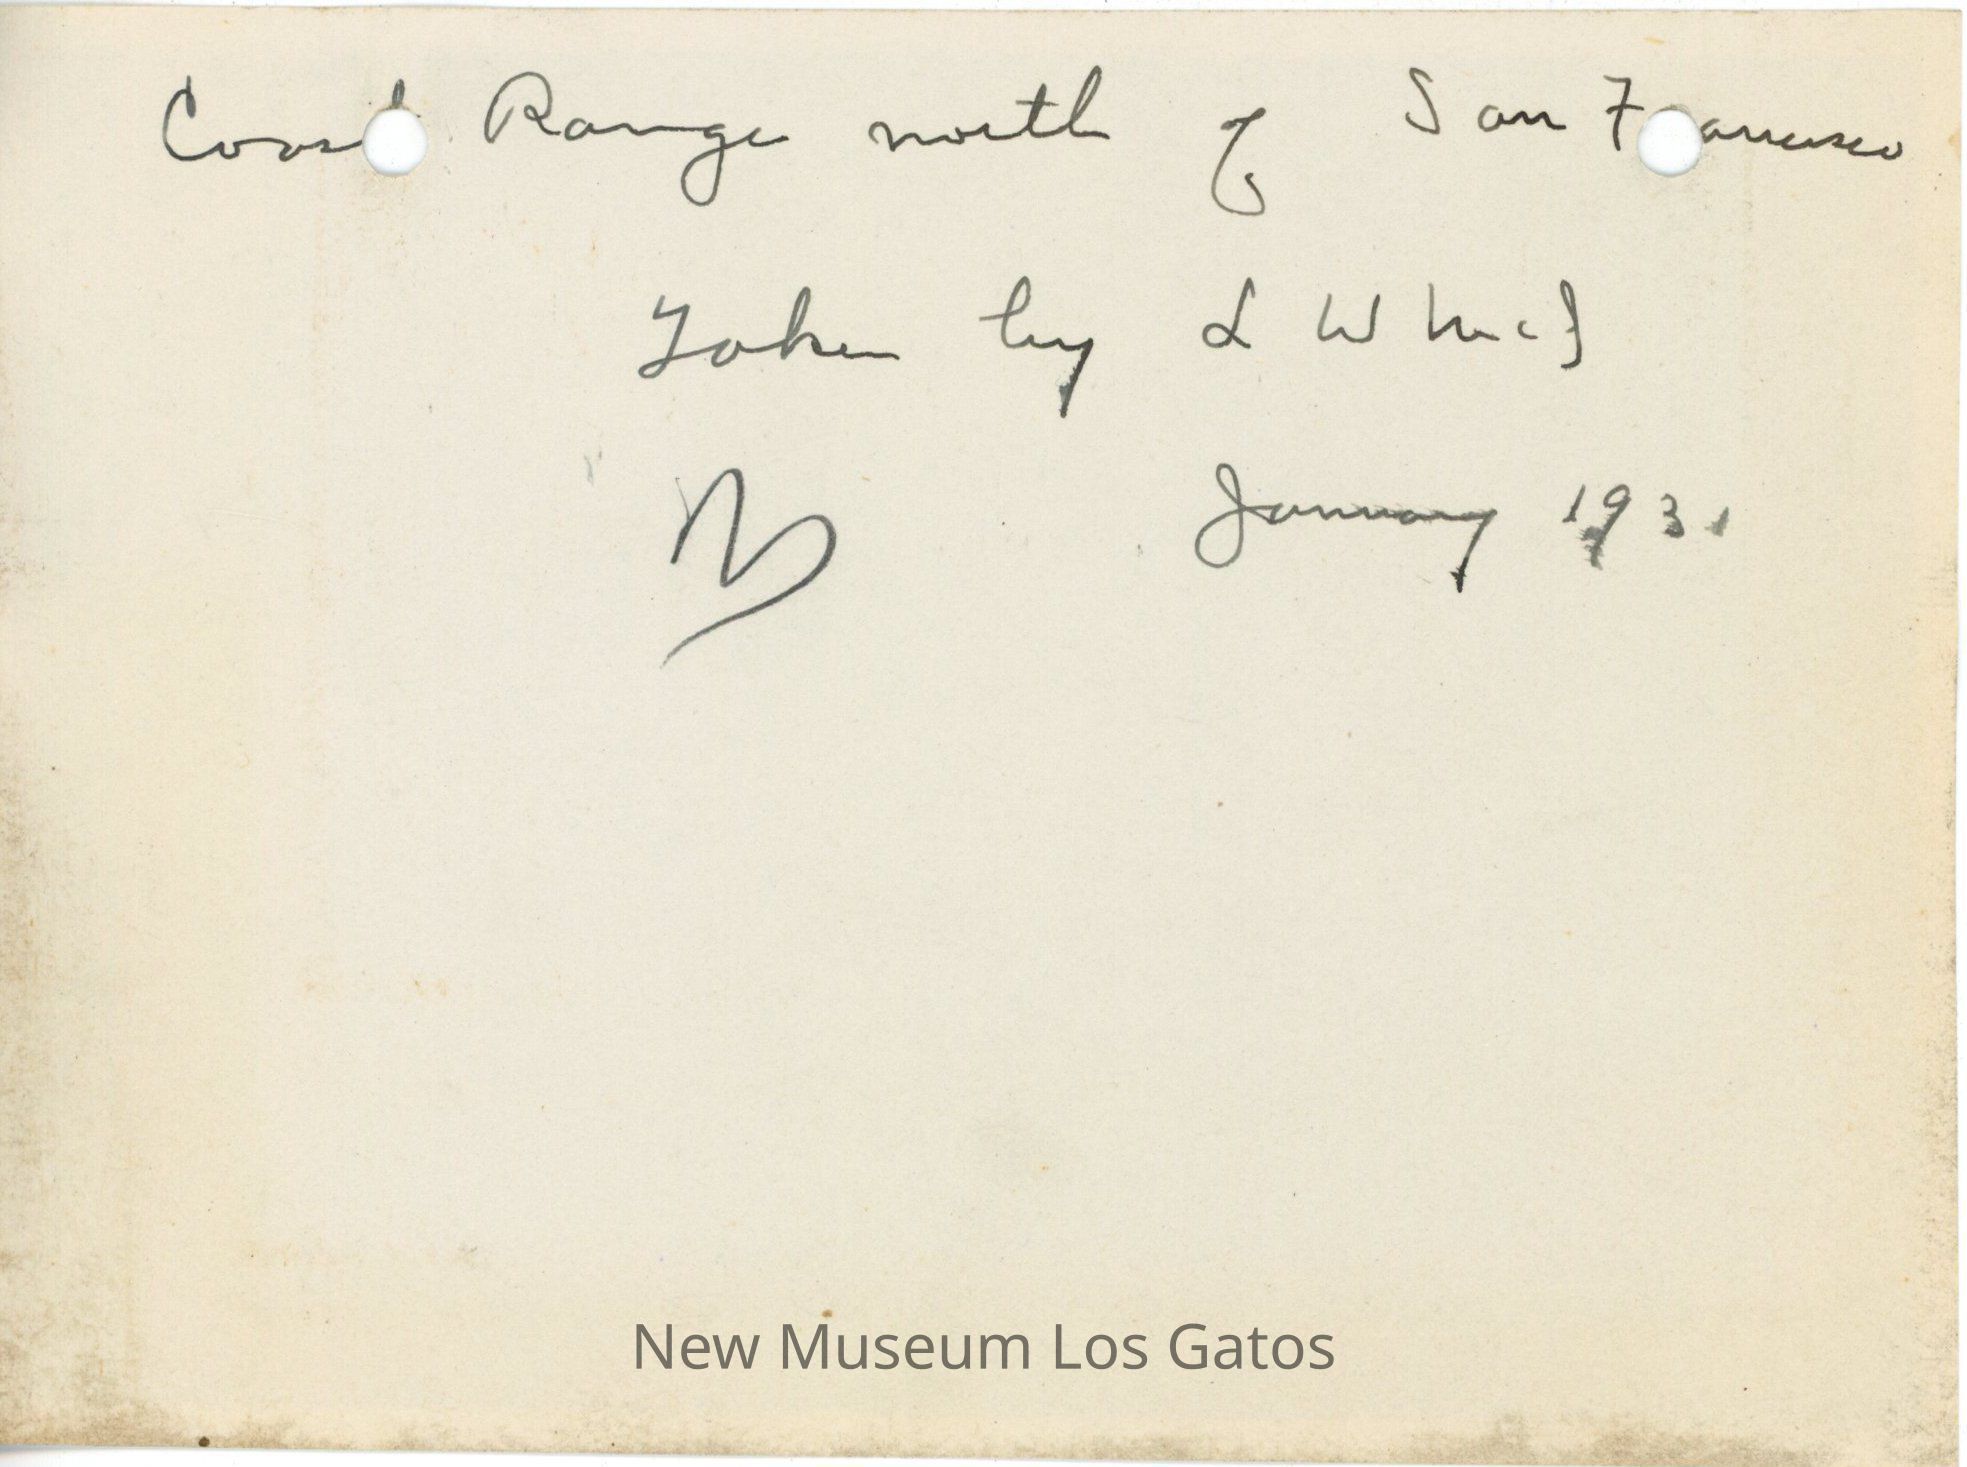 Coast Range north of San Francisco
Taken by L W
January 1931
New Museum Los Gatos